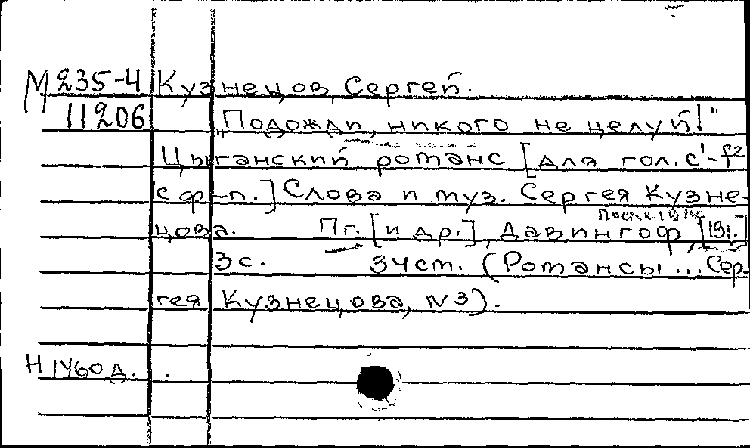 М 235-4 Кузнецов, Сергей.
11206 „Подожди, никого не целуй!"
Цыганский романс [для гол. c¹-f²
с ф-п.] Слова и муз. Сергея Кузне-
цова. Пг. [и др.], Давингоф, [191.]
3с. 3чст. (Романсы ... Сер-
гея Кузнецова, №3).
Н 1460д.